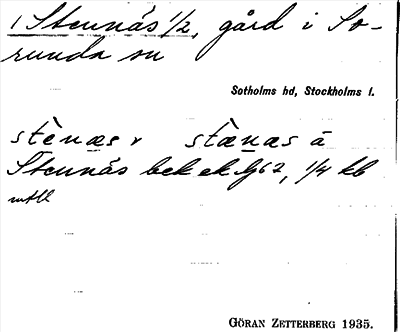 1 Stennäs 1/2, gård i So-
runda sn
Sotholms hd, Stockholms l.
stènæs v stæ̀nas ä
Stennäs bek ek G62, 1/4 kb
mtll
GÖRAN ZETTERBERG 1935.